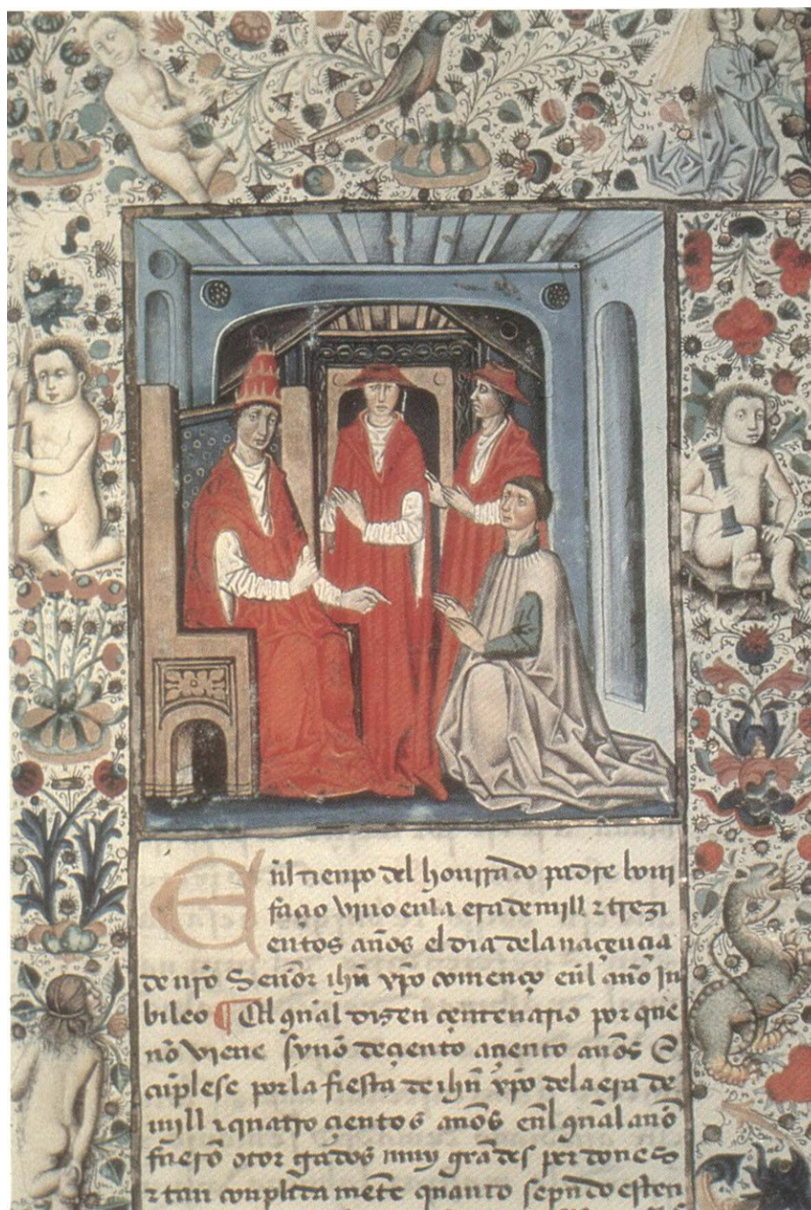 Enl tienpo del honrrado padre boni
façio vino enla era de mill z trezi
entos años el dia dela naçençia
de nr̃o Senõr ihũ xp̃o començo enl año in
bileo ¶ El qual dizen çentenario por que
nõ viene synõ de çiento a çiento años E
cũplese por la fiesta de ihũ xp̃o dela era de
mill z quatro çientos años enl qual año
fuerõ otorgados muy grãdes perdones
z tan conplida mẽte quanto se pudo esten